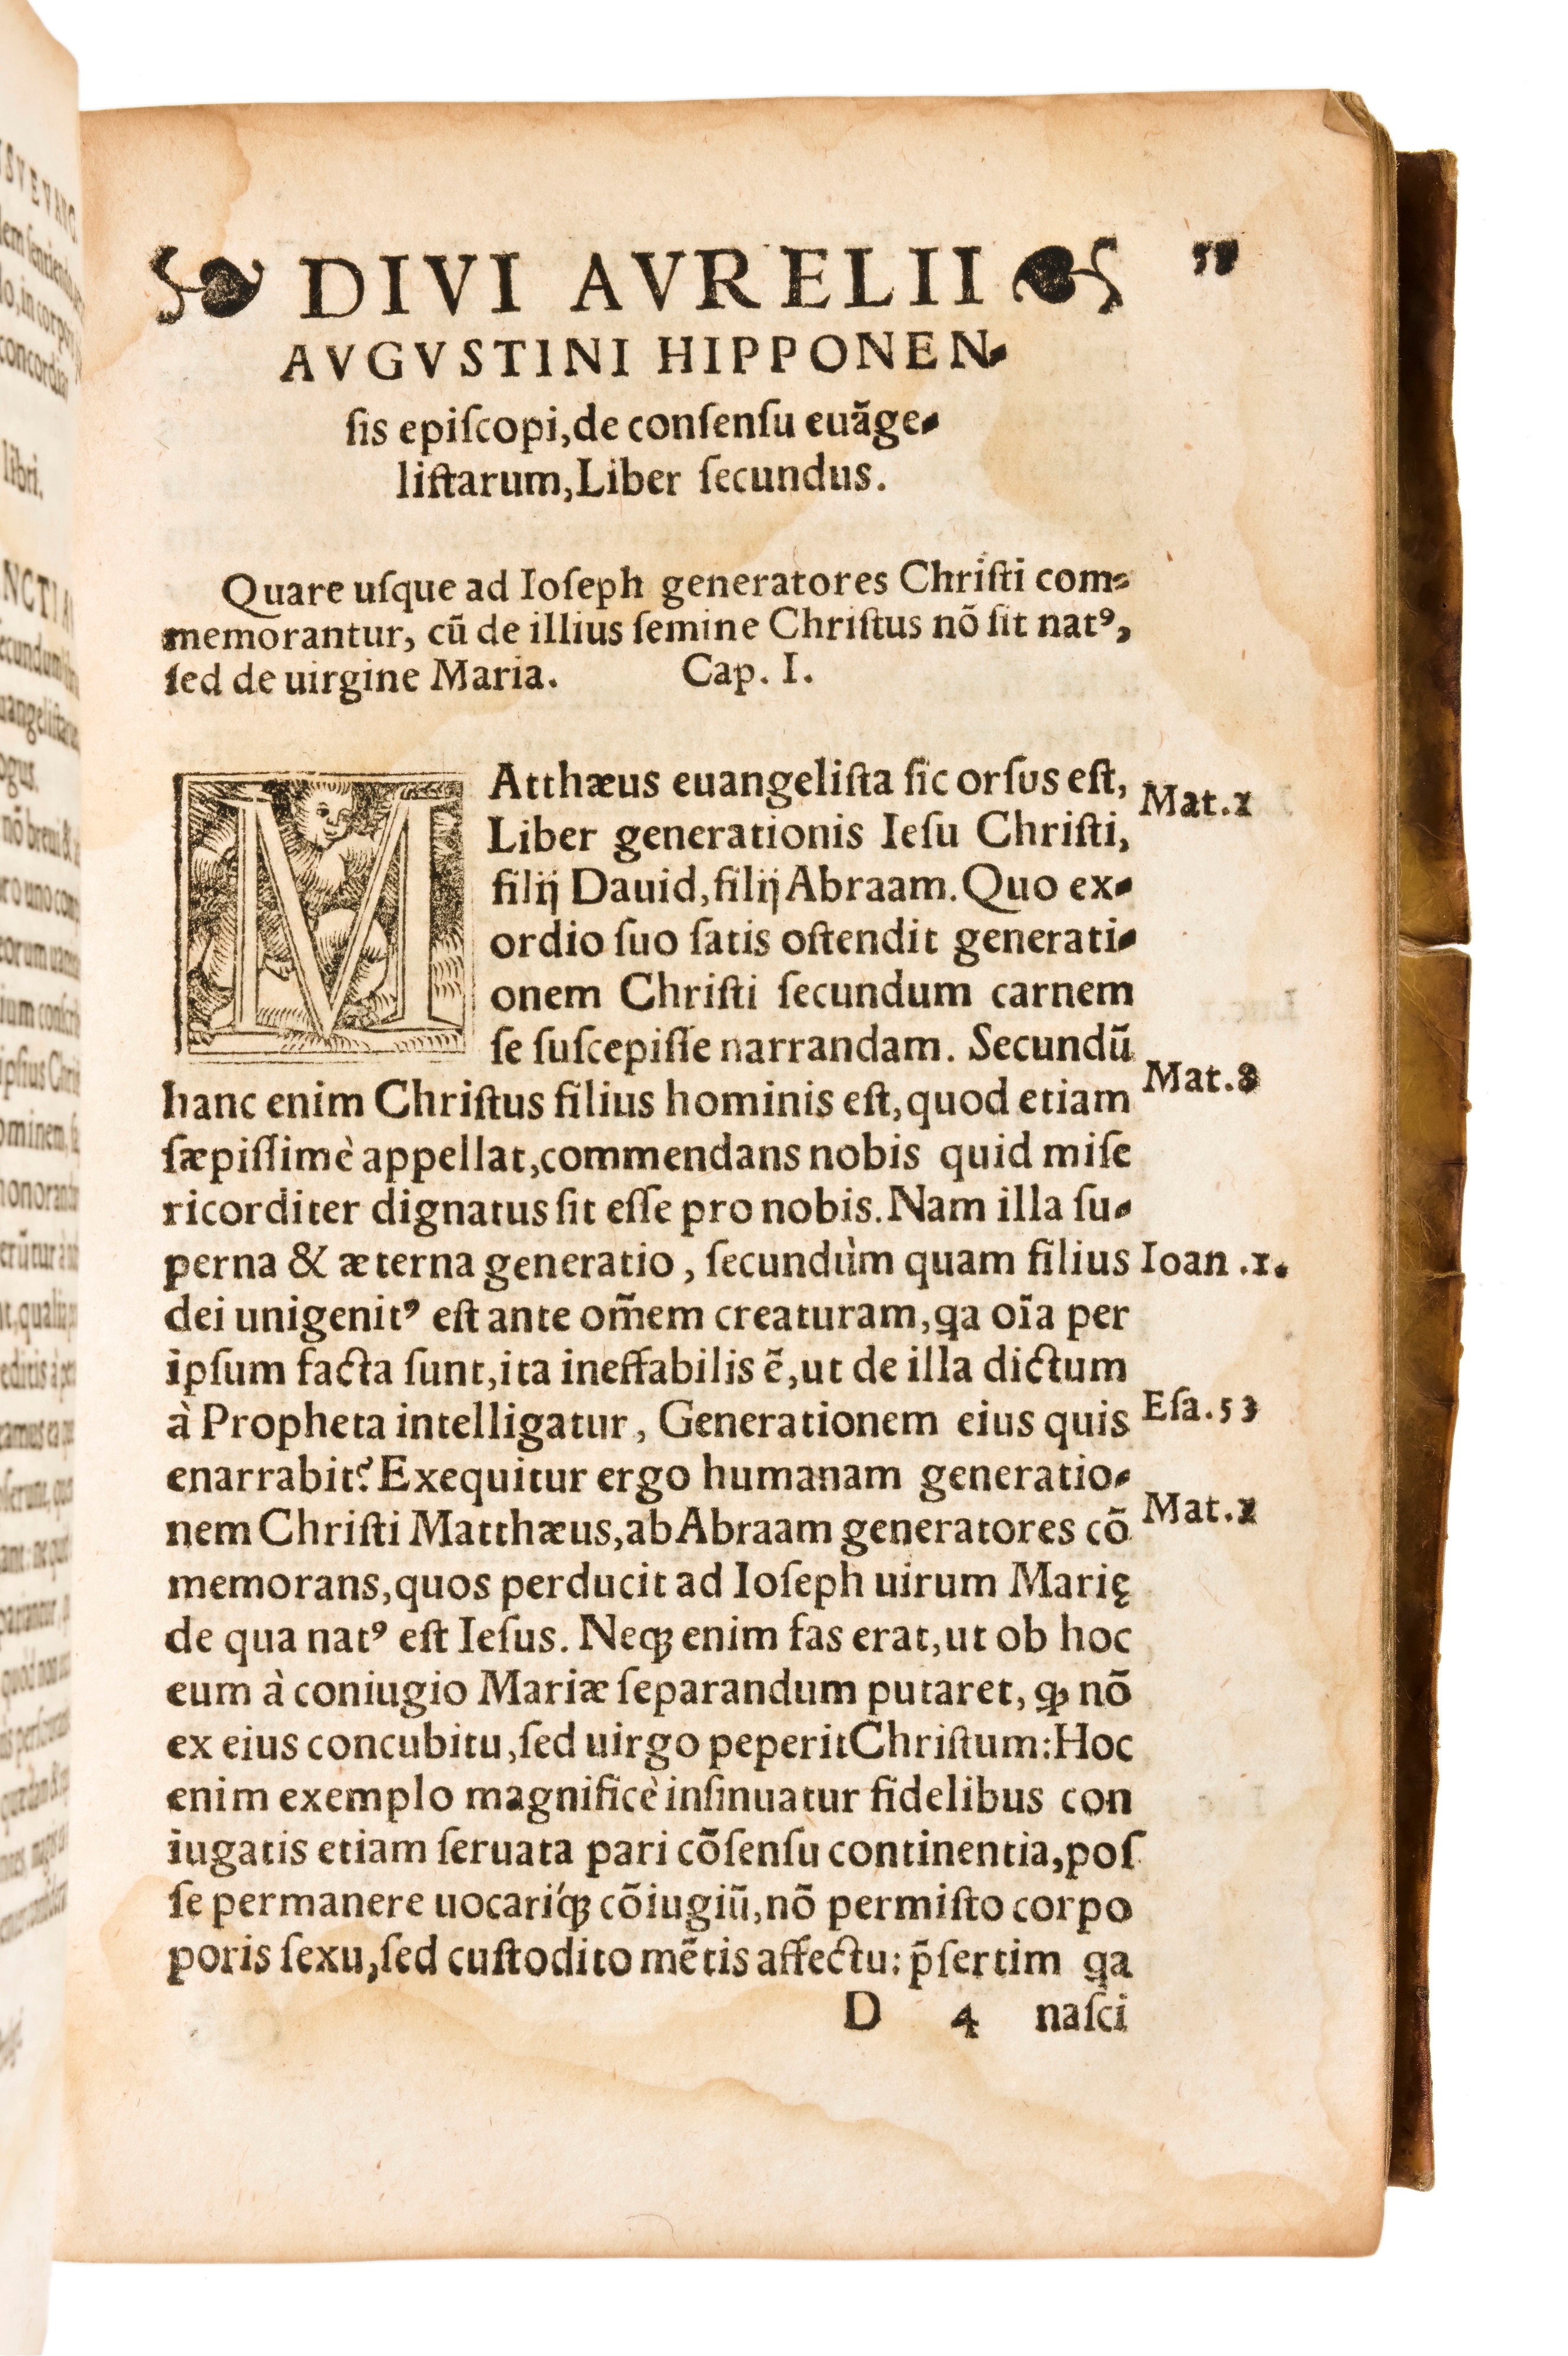 DIVI AVRELII
AVGVSTINI HIPPONEN-
ſis epiſcopi, de conſenſu euãge-
liſtarum, Liber ſecundus.
Quare uſque ad Ioſeph generatores Chriſti com-
memorantur, cũ de illius ſemine Chriſtus nõ ſit natꝰ,
ſed de uirgine Maria. Cap. I.
MAtthæus euangeliſta ſic orſus eſt, Mat.1
Liber generationis Ieſu Chriſti,
filij Dauid, filij Abraam. Quo ex-
ordio ſuo ſatis oſtendit generati-
onem Chriſti ſecundum carnem
ſe ſuſcepiſſe narrandam. Secundũ
hanc enim Chriſtus filius hominis eſt, quod etiam Mat.8
ſæpiſſimè appellat, commendans nobis quid miſe
ricorditer dignatus ſit eſſe pro nobis. Nam illa ſu-
perna & æterna generatio, ſecundùm quam filius Ioan.1.
dei unigenitꝰ eſt ante om̃em creaturam, ꝗa oĩa per
ipſum facta ſunt, ita ineffabilis ẽ, ut de illa dictum
à Propheta intelligatur, Generationem eius quis Eſa.53
enarrabit? Exequitur ergo humanam generatio-
nem Chriſti Matthæus, ab Abraam generatores cõ Mat.1
memorans, quos perducit ad Ioſeph uirum Marię
de qua natꝰ eſt Ieſus. Neqꝫ enim fas erat, ut ob hoc
eum à coniugio Mariæ ſeparandum putaret, ꝙ nõ
ex eius concubitu, ſed uirgo peperit Chriſtum: Hoc
enim exemplo magnificè inſinuatur fidelibus con
iugatis etiam ſeruata pari cõſenſu continentia, poſ
ſe permanere uocariqꝫ cõiugiũ, nõ permiſto corpo
poris ſexu, ſed cuſtodito mẽtis affectu: p̃ſertim ꝗa
D 4 naſci